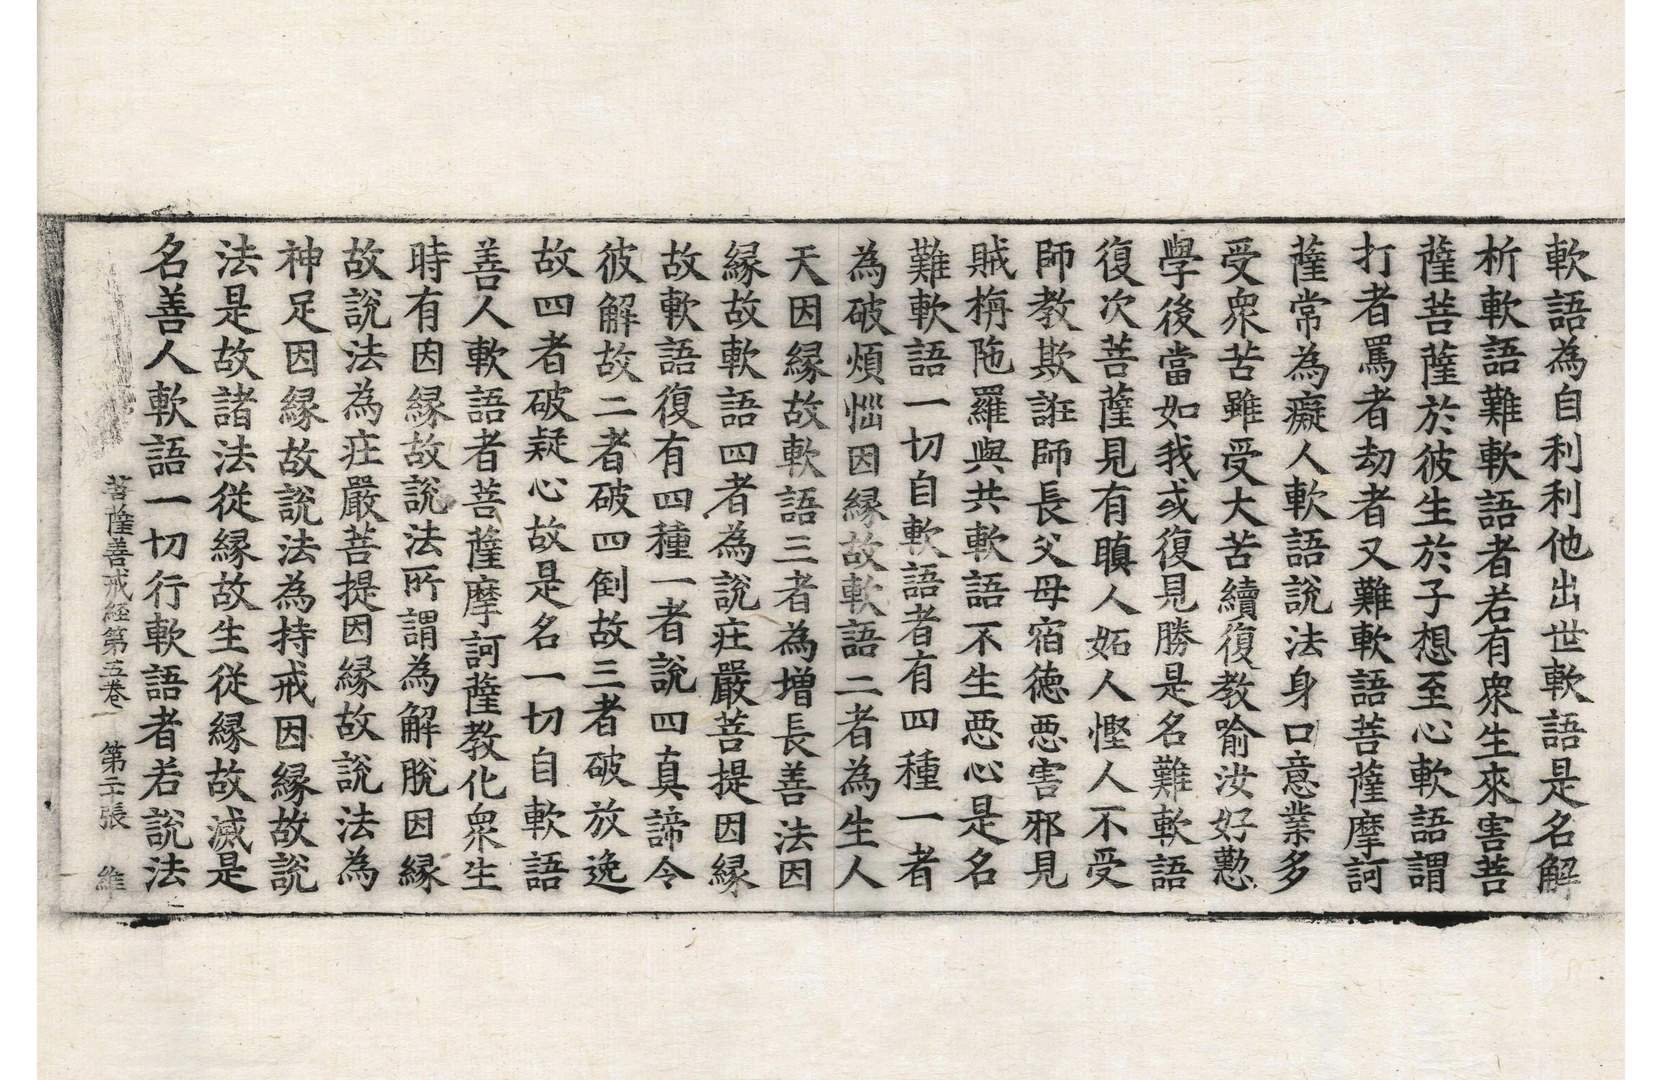 軟語為自利利他出世軟語是名解
析軟語難軟語者若有衆生來害菩
薩菩薩於彼生於子想至心軟語謂
打者罵者劫者又難軟語菩薩摩訶
薩常為癡人軟語說法身口意業多
受衆苦雖受大苦續復教喻汝好懃
學後當如我或復見勝是名難軟語
復次菩薩見有瞋人妬人慳人不受
師教欺誑師長父母宿德惡害邪見
賊栴陁羅與共軟語不生惡心是名
難軟語一切自軟語者有四種一者
為破煩惱因縁故軟語二者為生人
天因縁故軟語三者為增長善法因
縁故軟語四者為說莊嚴菩提因縁
故軟語復有四種一者說四真諦令
彼解故二者破四倒故三者破放逸
故四者破疑心故是名一切自軟語
善人軟語者菩薩摩訶薩教化衆生
時有因縁故說法所謂為解脫因縁
故說法為莊嚴菩提因縁故說法為
神足因縁故說法為持戒因縁故說
法是故諸法從縁故生從縁故滅是
名善人軟語一切行軟語者若說法
菩薩善戒經第五卷 第二張 維